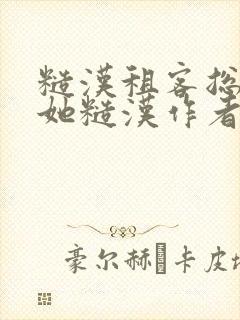 糙漢租客總
她糙漢作者
豪尔赫·卡皮